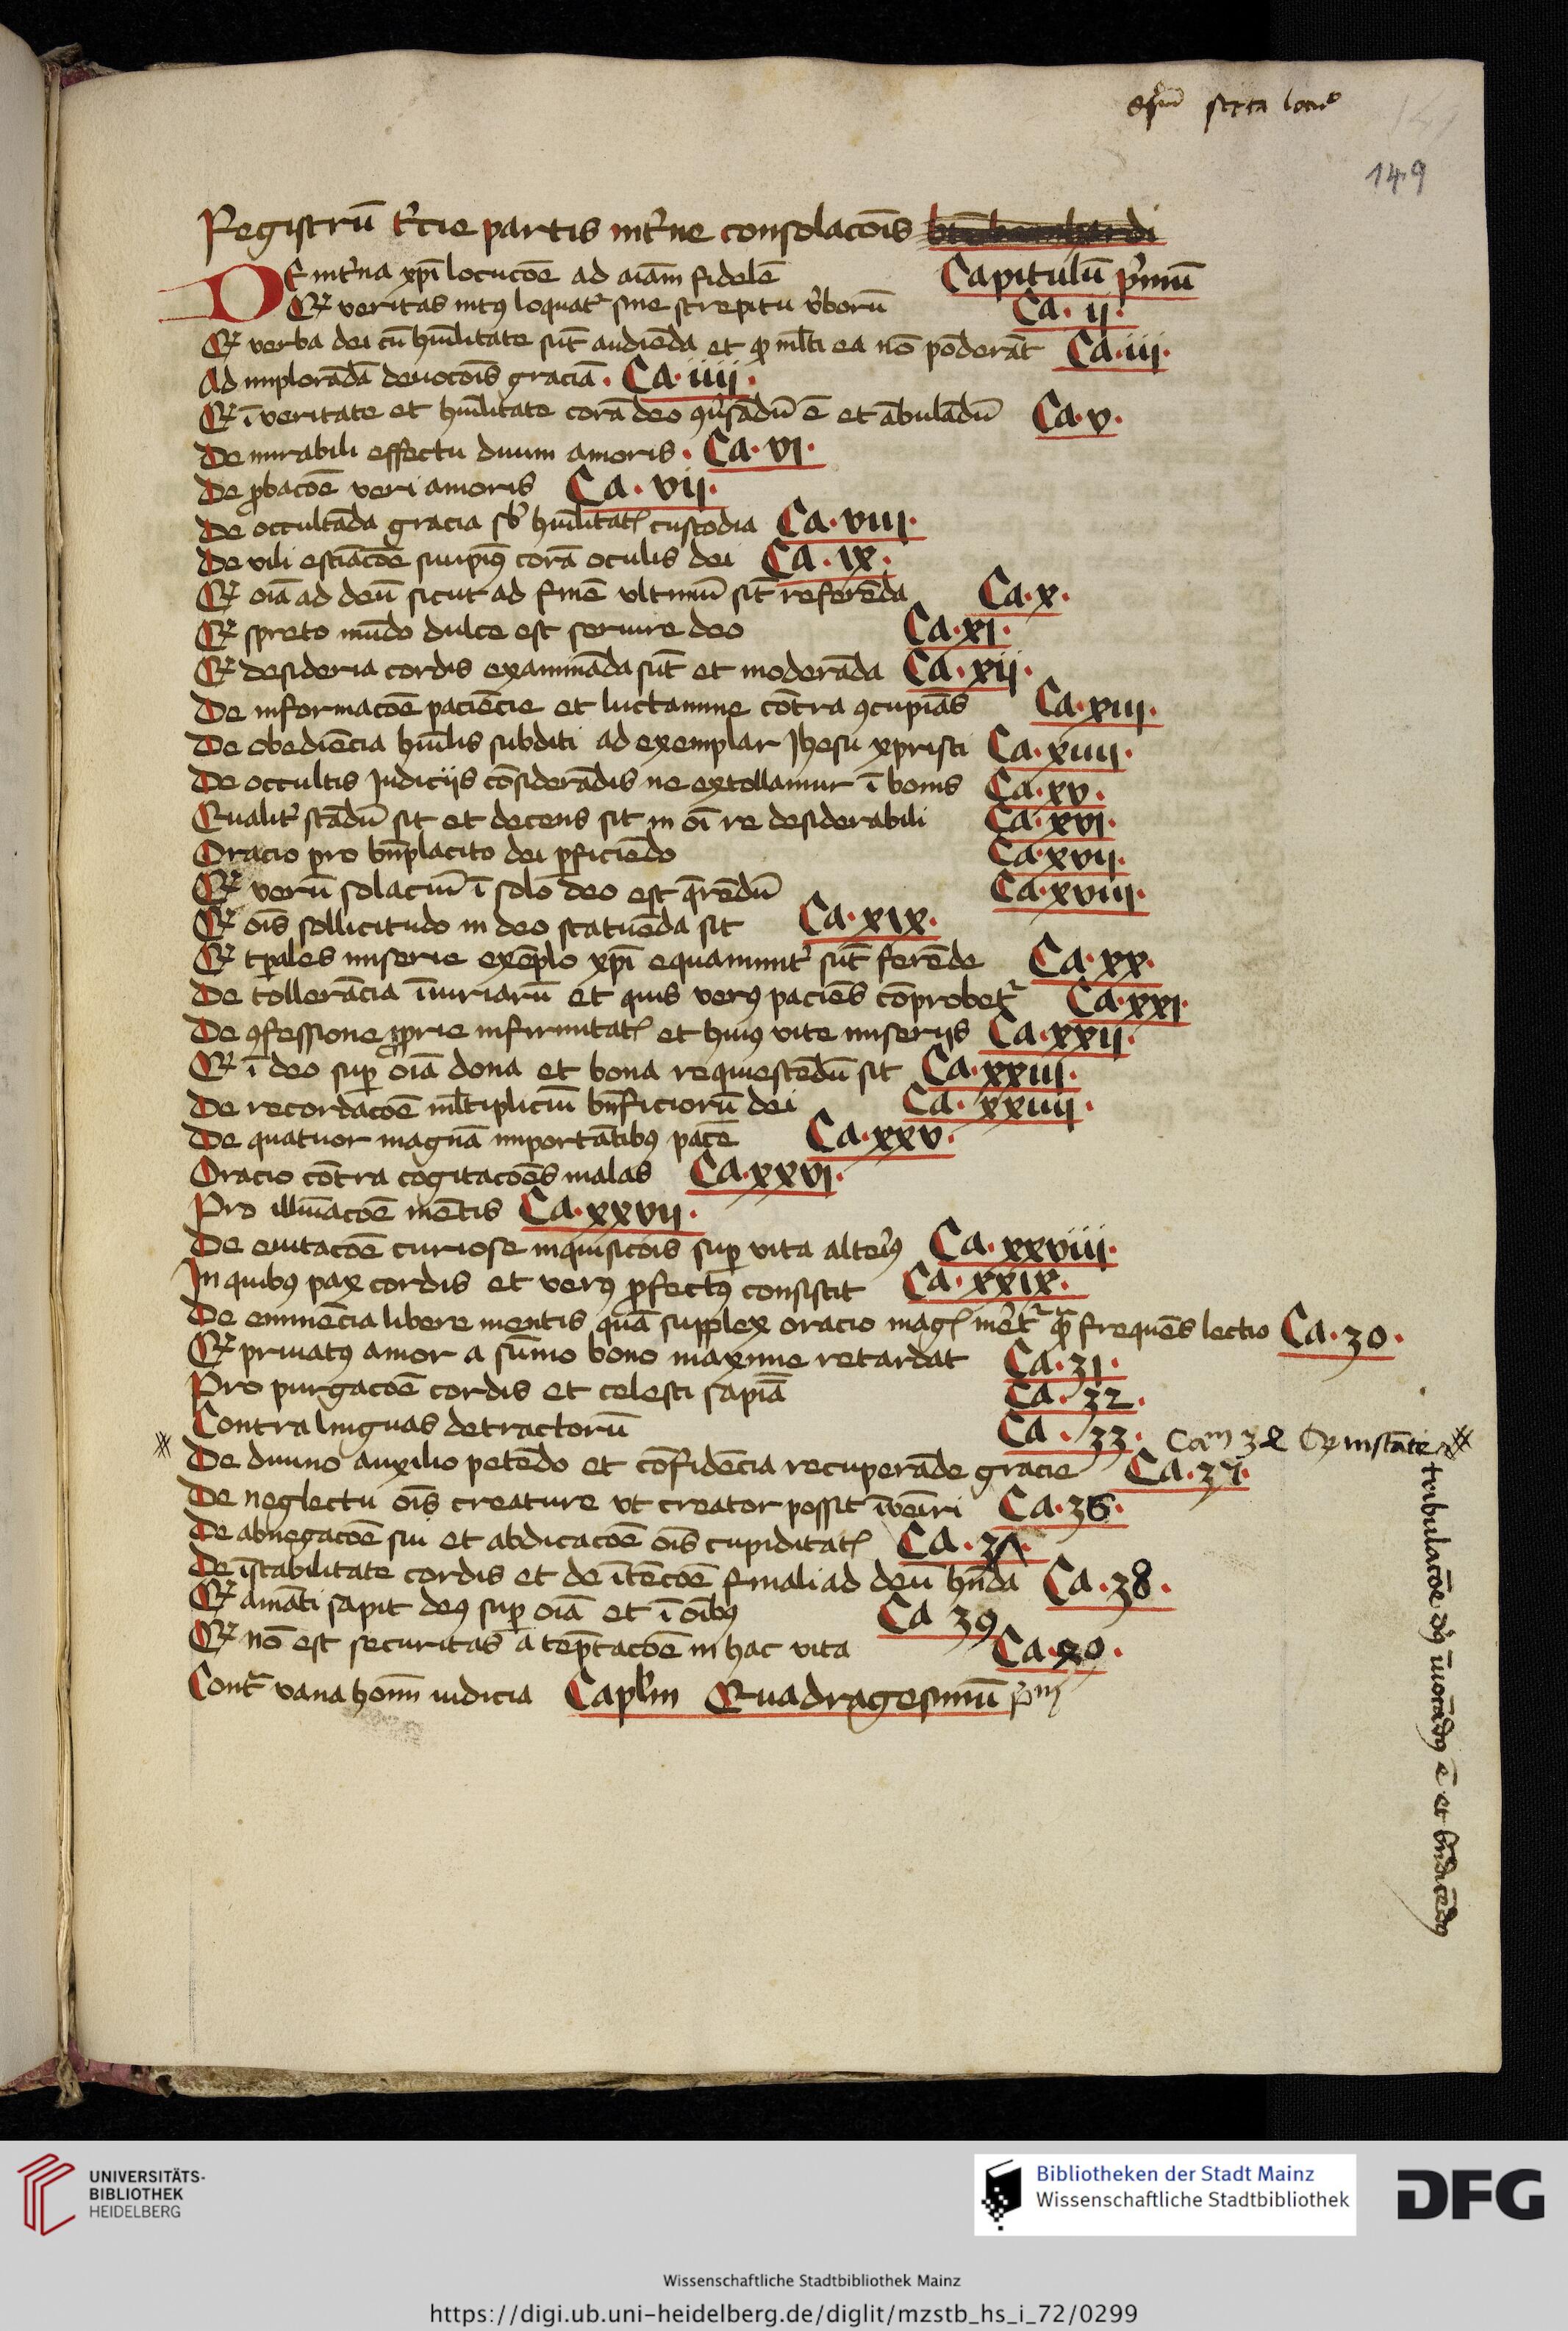 149
Registrū t'cie partis int'ne consolacōis
De int'na xpī locucōe ad aīam fidelē Capitulū p'mū
Qz veritas intꝯ loquat' sine strepitu v'borū Ca. ii.
Qz verba dei cū hūilitate sūt audiēda et ꝙ ml̄ti ea nō pōderāt Ca. iii.
Ad implorādā deuocōis graciā. Ca. iiii.
Qz ī veritate et hūilitate corā deo ꝯu'sādū ē et ābulādū Ca. v.
De mirabili effectu diuini amoris. Ca. vi.
De ꝓbacōe veri amoris Ca. vii.
De occultāda gracia sb' hūilitatꝭ custodia Ca. viii.
De vili estiācōe suiipiꝰ corā oculis dei Ca. ix.
Qz oīa ad deū sicut ad finē vltimū sīt referēda Ca. x.
Qz spreto mūdo dulce est seruire deo Ca. xi.
Qz desideria cordis examināda sūt et moderāda Ca. xii.
De informacōe paciēcie et luctamine cōtra ꝯcupiās Ca. xiii.
De obediēcia hūilis subditi ad exemplar Jhesu xpristi Ca. xiiii.
De occultis Judiciis cōsiderādis ne extollamur ī bonis Ca. xv.
Qualit' stādū sit et decens sit in oī re desiderabili Ca. xvi.
Oracio pro bn̄placito dei ꝑficiēdo Ca. xvii.
Qz verū solaciū ī solo deo est q̄rēdū Ca. xviii.
Qz oīs sollicitudo in deo statuēda sit Ca. xix.
Qz tꝑales miserie exēplo xpī equanimit' sūt ferēde Ca. xx.
De tollerācia īiuriarū et quis verꝰ paciēs cōprobet' Ca. xxi.
De ꝯfessione ꝓprie infirmitatꝭ et huiꝰ vite miseriis Ca. xxii.
Qz ī deo suꝑ oīa dona et bona requiescēdū sit Ca. xxiii.
De recordacōe ml̄tipliciū bn̄ficiorū dei Ca. xxiiii.
De quatuor magnā importātibꝰ pacē Ca. xxv.
Oracio cōtra cogitacōes malas Ca. xxvi.
Pro illūīacōe mētis Ca. xxvii.
De euitacōe curiose inquisicōis suꝑ vita alteri'ꝰ Ca. xxviii.
In quibꝰ pax cordis et verꝰ ꝓfectꝰ consistit Ca. xxix.
De eminēcia libere mentis quā supplex oracio magꝭ me'et' ꝙ frequēs lectio Ca. 30.
Qz priuatꝰ amor a sūmo bono maxime retardat Ca. 31.
Pro purgacōe cordis et celesti sapiā Ca. 32.
Contra linguas detractorū Ca. 33. Caᵐ 3ꝝ Qz instāte
De diuino auxilio petēdo et cōfidēcia recuperāde gracie Ca. 3ꝝ.
tribulacōe dꝰ īuocādꝰ ē et bn̄dicēdꝰ
De neglectu oīs creature vt creator possit īueīri Ca. 36.
De abnegacōe sui et abdicacōe oīs cupiditatꝭ Ca. 3ʌ.
De īstabilitate cordis et de ītēcōe finali ad deū hn̄da Ca. 38.
Qz amāti sapit deꝰ suꝑ oīa et ī oībꝰ Ca 39
Qz nō est securitas a tēptacōe in hac vita Ca. ꝝ0.
Cont' vana hoīm iudicia Capl'm Quadragesimū pᵐ
UNIVERSITÄTS-
BIBLIOTHEK
HEIDELBERG
Bibliotheken der Stadt Mainz
Wissenschaftliche Stadtbibliothek
DFG
Wissenschaftliche Stadtbibliothek Mainz
https://digi.ub.uni-heidelberg.de/diglit/mzstb_hs_i_72/0299